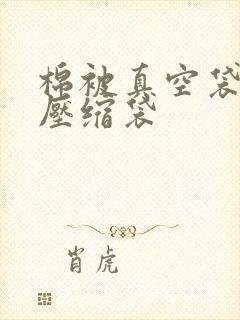 棉被真空袋
壓缩袋
肖虎